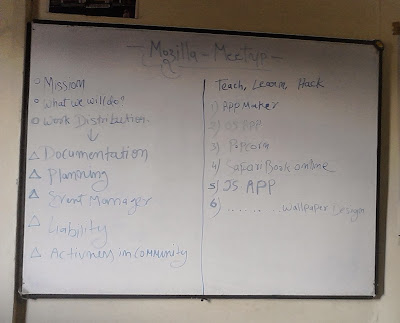 - Mozilla - Meetup -
o Mission
o What we will do?
o Work Distribution.
↓
△ Documentation
△ Planning
△ Event Manager
△ Liability
△ Activness in community
Teach, Learn, Hack
1) APP Maker
2) OS APP
3) Popcorn
4) Safari Book online
5) JS APP
6) ....... Wallpaper Design